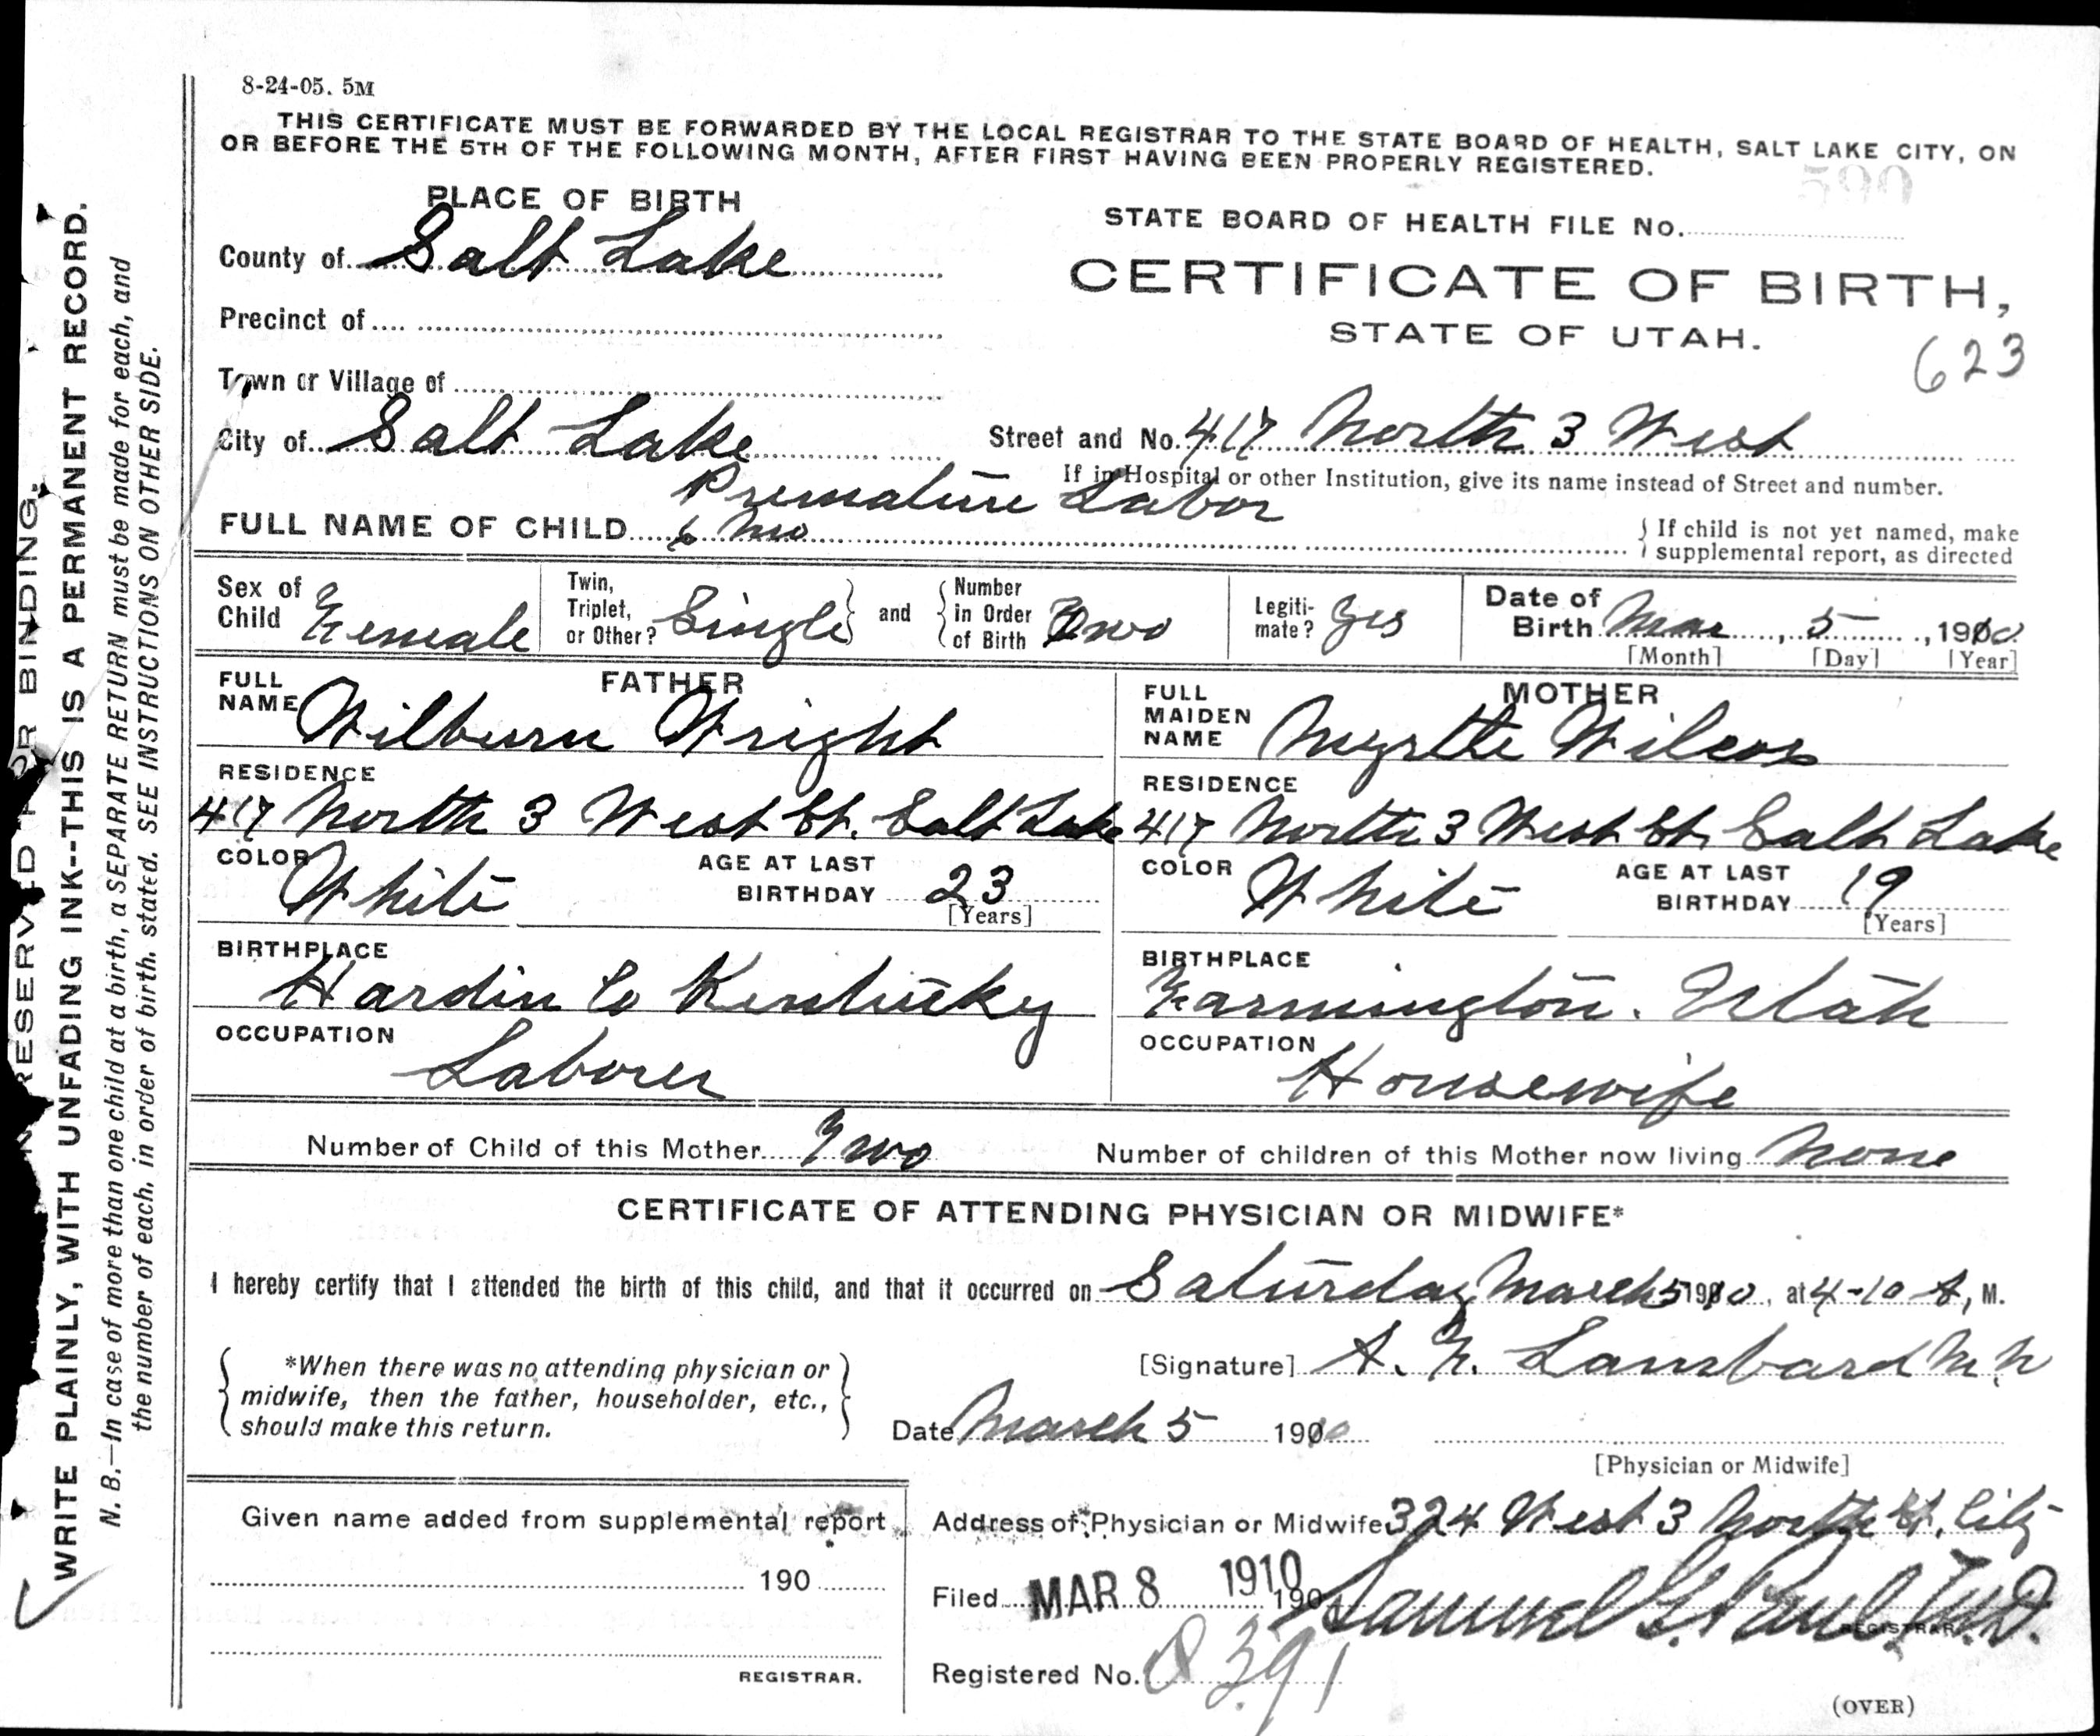 8-24-05. 5M
THIS CERTIFICATE MUST BE FORWARDED BY THE LOCAL REGISTRAR TO THE STATE BOARD OF HEALTH, SALT LAKE CITY, ON
OR BEFORE THE 5TH OF THE FOLLOWING MONTH, AFTER FIRST HAVING BEEN PROPERLY REGISTERED.
590
PLACE OF BIRTH
STATE BOARD OF HEALTH FILE No.
County of Salt Lake
CERTIFICATE OF BIRTH,
Precinct of
STATE OF UTAH.
623
Town or Village of
City of Salt Lake Street and No. 417 North 3 West
If in Hospital or other Institution, give its name instead of Street and number.
Premature Labor
FULL NAME OF CHILD 6 Mo
If child is not yet named, make
supplemental report, as directed
Sex of Child Female Twin, Triplet, or Other? Single and Number in Order of Birth Two Legiti-mate? Yes Date of Birth Mar, 5, 1910
[Month] [Day] [Year]
FATHER
FULL NAME Wilburn Wright
MOTHER
FULL MAIDEN NAME Myrtle Wilcox
RESIDENCE
417 North 3 West St. Salt Lake
RESIDENCE
417 North 3 West St. Salt Lake
COLOR White AGE AT LAST BIRTHDAY 23 [Years]
COLOR White AGE AT LAST BIRTHDAY 19 [Years]
BIRTHPLACE
Hardin Co Kentucky
BIRTHPLACE
Farmington. Utah
OCCUPATION
Laborer
OCCUPATION
Housewife
Number of Child of this Mother Two Number of children of this Mother now living None
CERTIFICATE OF ATTENDING PHYSICIAN OR MIDWIFE*
I hereby certify that I attended the birth of this child, and that it occurred on Saturday March 5 1910, at 4-10 A, M.
*When there was no attending physician or
midwife, then the father, householder, etc.,
should make this return.
[Signature] A. F. Lambard
Date March 5 1910
[Physician or Midwife]
Given name added from supplemental report
190
REGISTRAR.
Address of Physician or Midwife 324 West 3 North St, City
Filed MAR 8 1910 190 Samuel G. Paul, M.D.
REGISTRAR.
Registered No. 391
(OVER)
RESERVED FOR BINDING.
WRITE PLAINLY, WITH UNFADING INK--THIS IS A PERMANENT RECORD.
N. B.—In case of more than one child at a birth, a SEPARATE RETURN must be made for each, and
the number of each, in order of birth, stated. SEE INSTRUCTIONS ON OTHER SIDE.